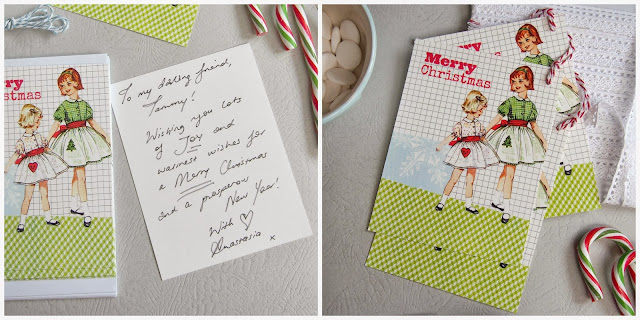 Christmas
To my darling friend,
Tammy!
Wishing you lots
of Joy and
warmest wishes for
a Merry Christmas
and a prosperous
New Year!
With ♡
Anastasia x
Merry
Christmas